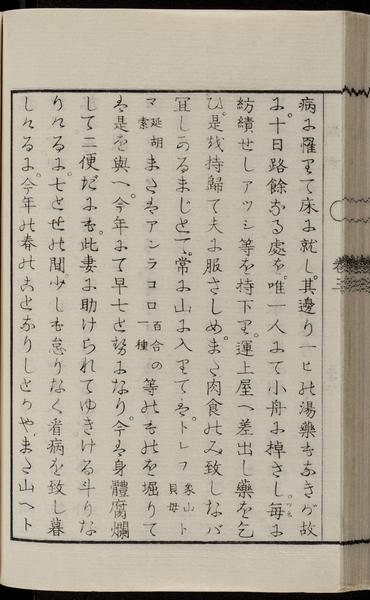 病に罹りて床に就し。其邊り一ヒの湯藥もなきが故
に。十日路餘なる處を。唯一人にて小舟に棹さし。毎ツネに
紡績せしアッシ等を持下り。運上屋へ差出し藥を乞
ひ。是を持歸て夫に服さしめ。また肉食のみ致しなバ
宜しかるまじとて。常に山に入りてハ。トレフ象山貝母ト
マ延胡索またハアンラコロ百合の一種等のものを堀りて
ハ是を與へ。今年にて早七とせになり。今ハ身體腐爛
して二便だにも。此妻に助けられてゆきける斗りな
りけるに。七とせの間少しも怠りなく看病を致し暮
しけるに。今年の春のことなりしとかや。また山へト
卷三